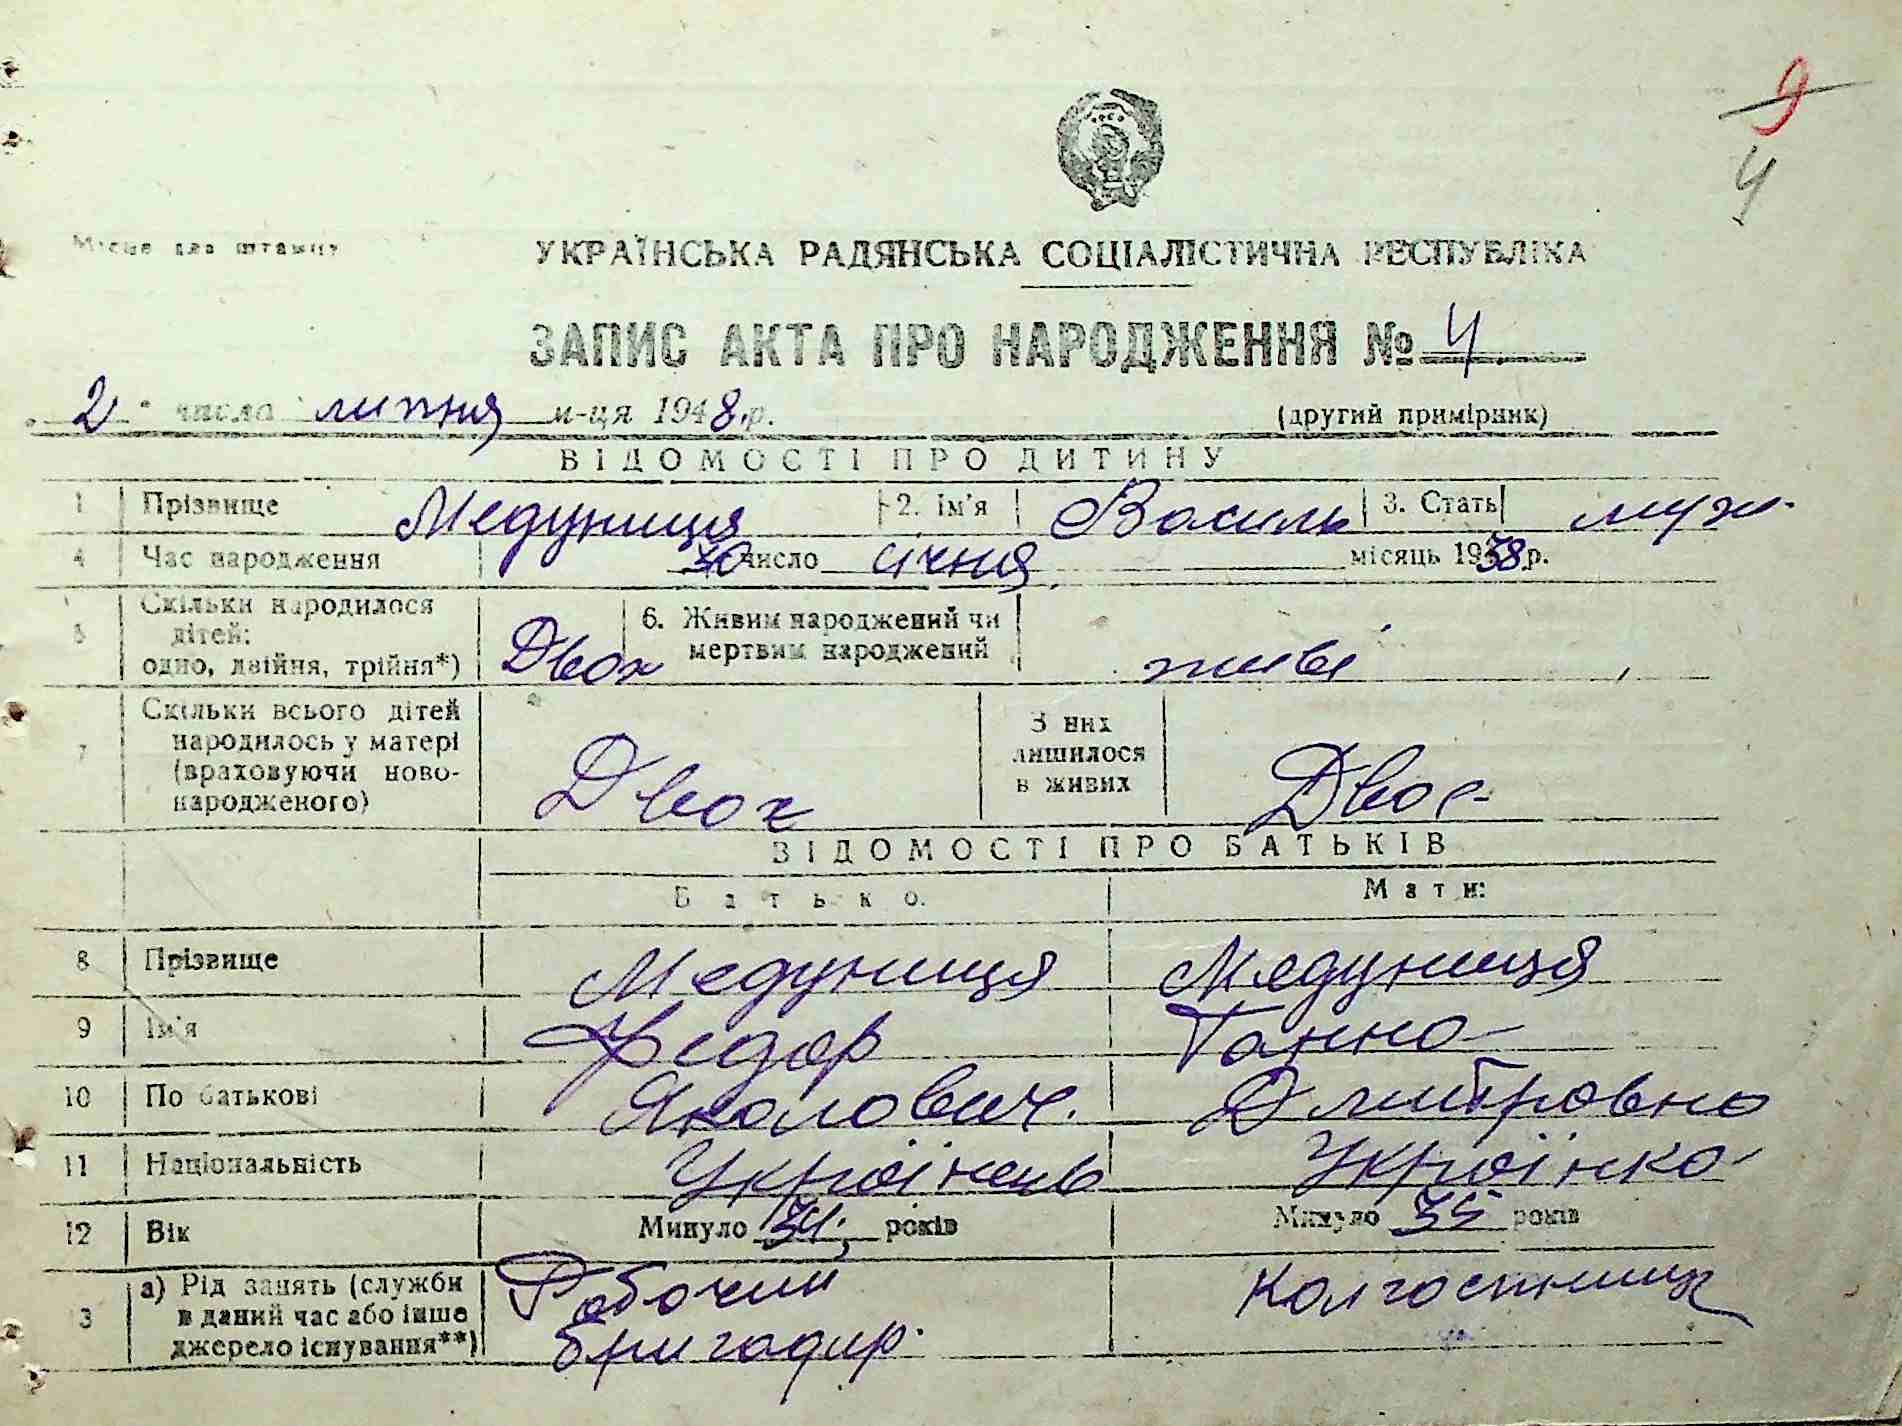 9
4
Місце для штампу
УКРАЇНСЬКА РАДЯНСЬКА СОЦІАЛІСТИЧНА РЕСПУБЛІКА
ЗАПИС АКТА ПРО НАРОДЖЕННЯ № 4.
„2" числа липня м-ця 1948 р.
(другий примірник)
ВІДОМОСТІ ПРО ДИТИНУ
1 Прізвище Медуниця 2. Ім'я Василь 3. Стать муж.
4 Час народження 30 число січня місяць 1938 р.
5 Скільки народилося дітей: одно, двійня, трійня*) Двох 6. Живим народжений чи мертвим народжений живі
7 Скільки всього дітей народилось у матері (враховуючи ново-народженого) Двох З них лишилося в живих Двоє
ВІДОМОСТІ ПРО БАТЬКІВ
Батько: Мати:
8 Прізвище Медуниця Медуниця
9 Ім'я Федор Ганна
10 По батькові Дмитровна
11 Національність Українець Українка
12 Вік Минуло 34; років Минуло 35 років
3 а) Рід занять (служби в даний час або інше джерело існування**) Робочий бригадир. Колгоспниця